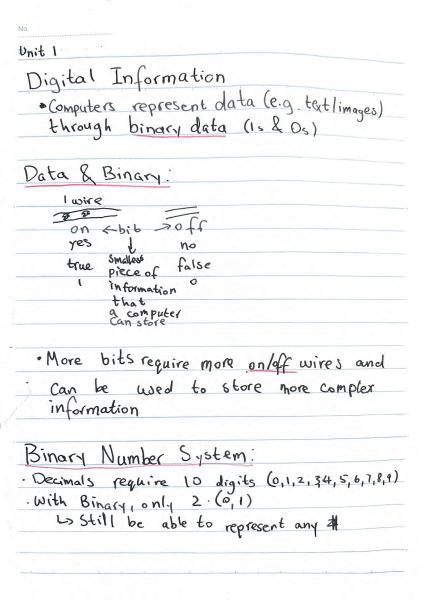 No.
Unit 1
Digital Information
• Computers represent data (e.g. text/images)
through binary data (1s & 0s)
Data & Binary:
1 wire
on ← bit → off
yes ↓ no
true smallest false
1 piece of 0
information
that
a computer
can store
• More bits require more on/off wires and
can be used to store more complex
information
Binary Number System:
• Decimals require 10 digits (0,1,2,3,4,5,6,7,8,9)
• With Binary, only 2 • (0,1)
↳ Still be able to represent any #